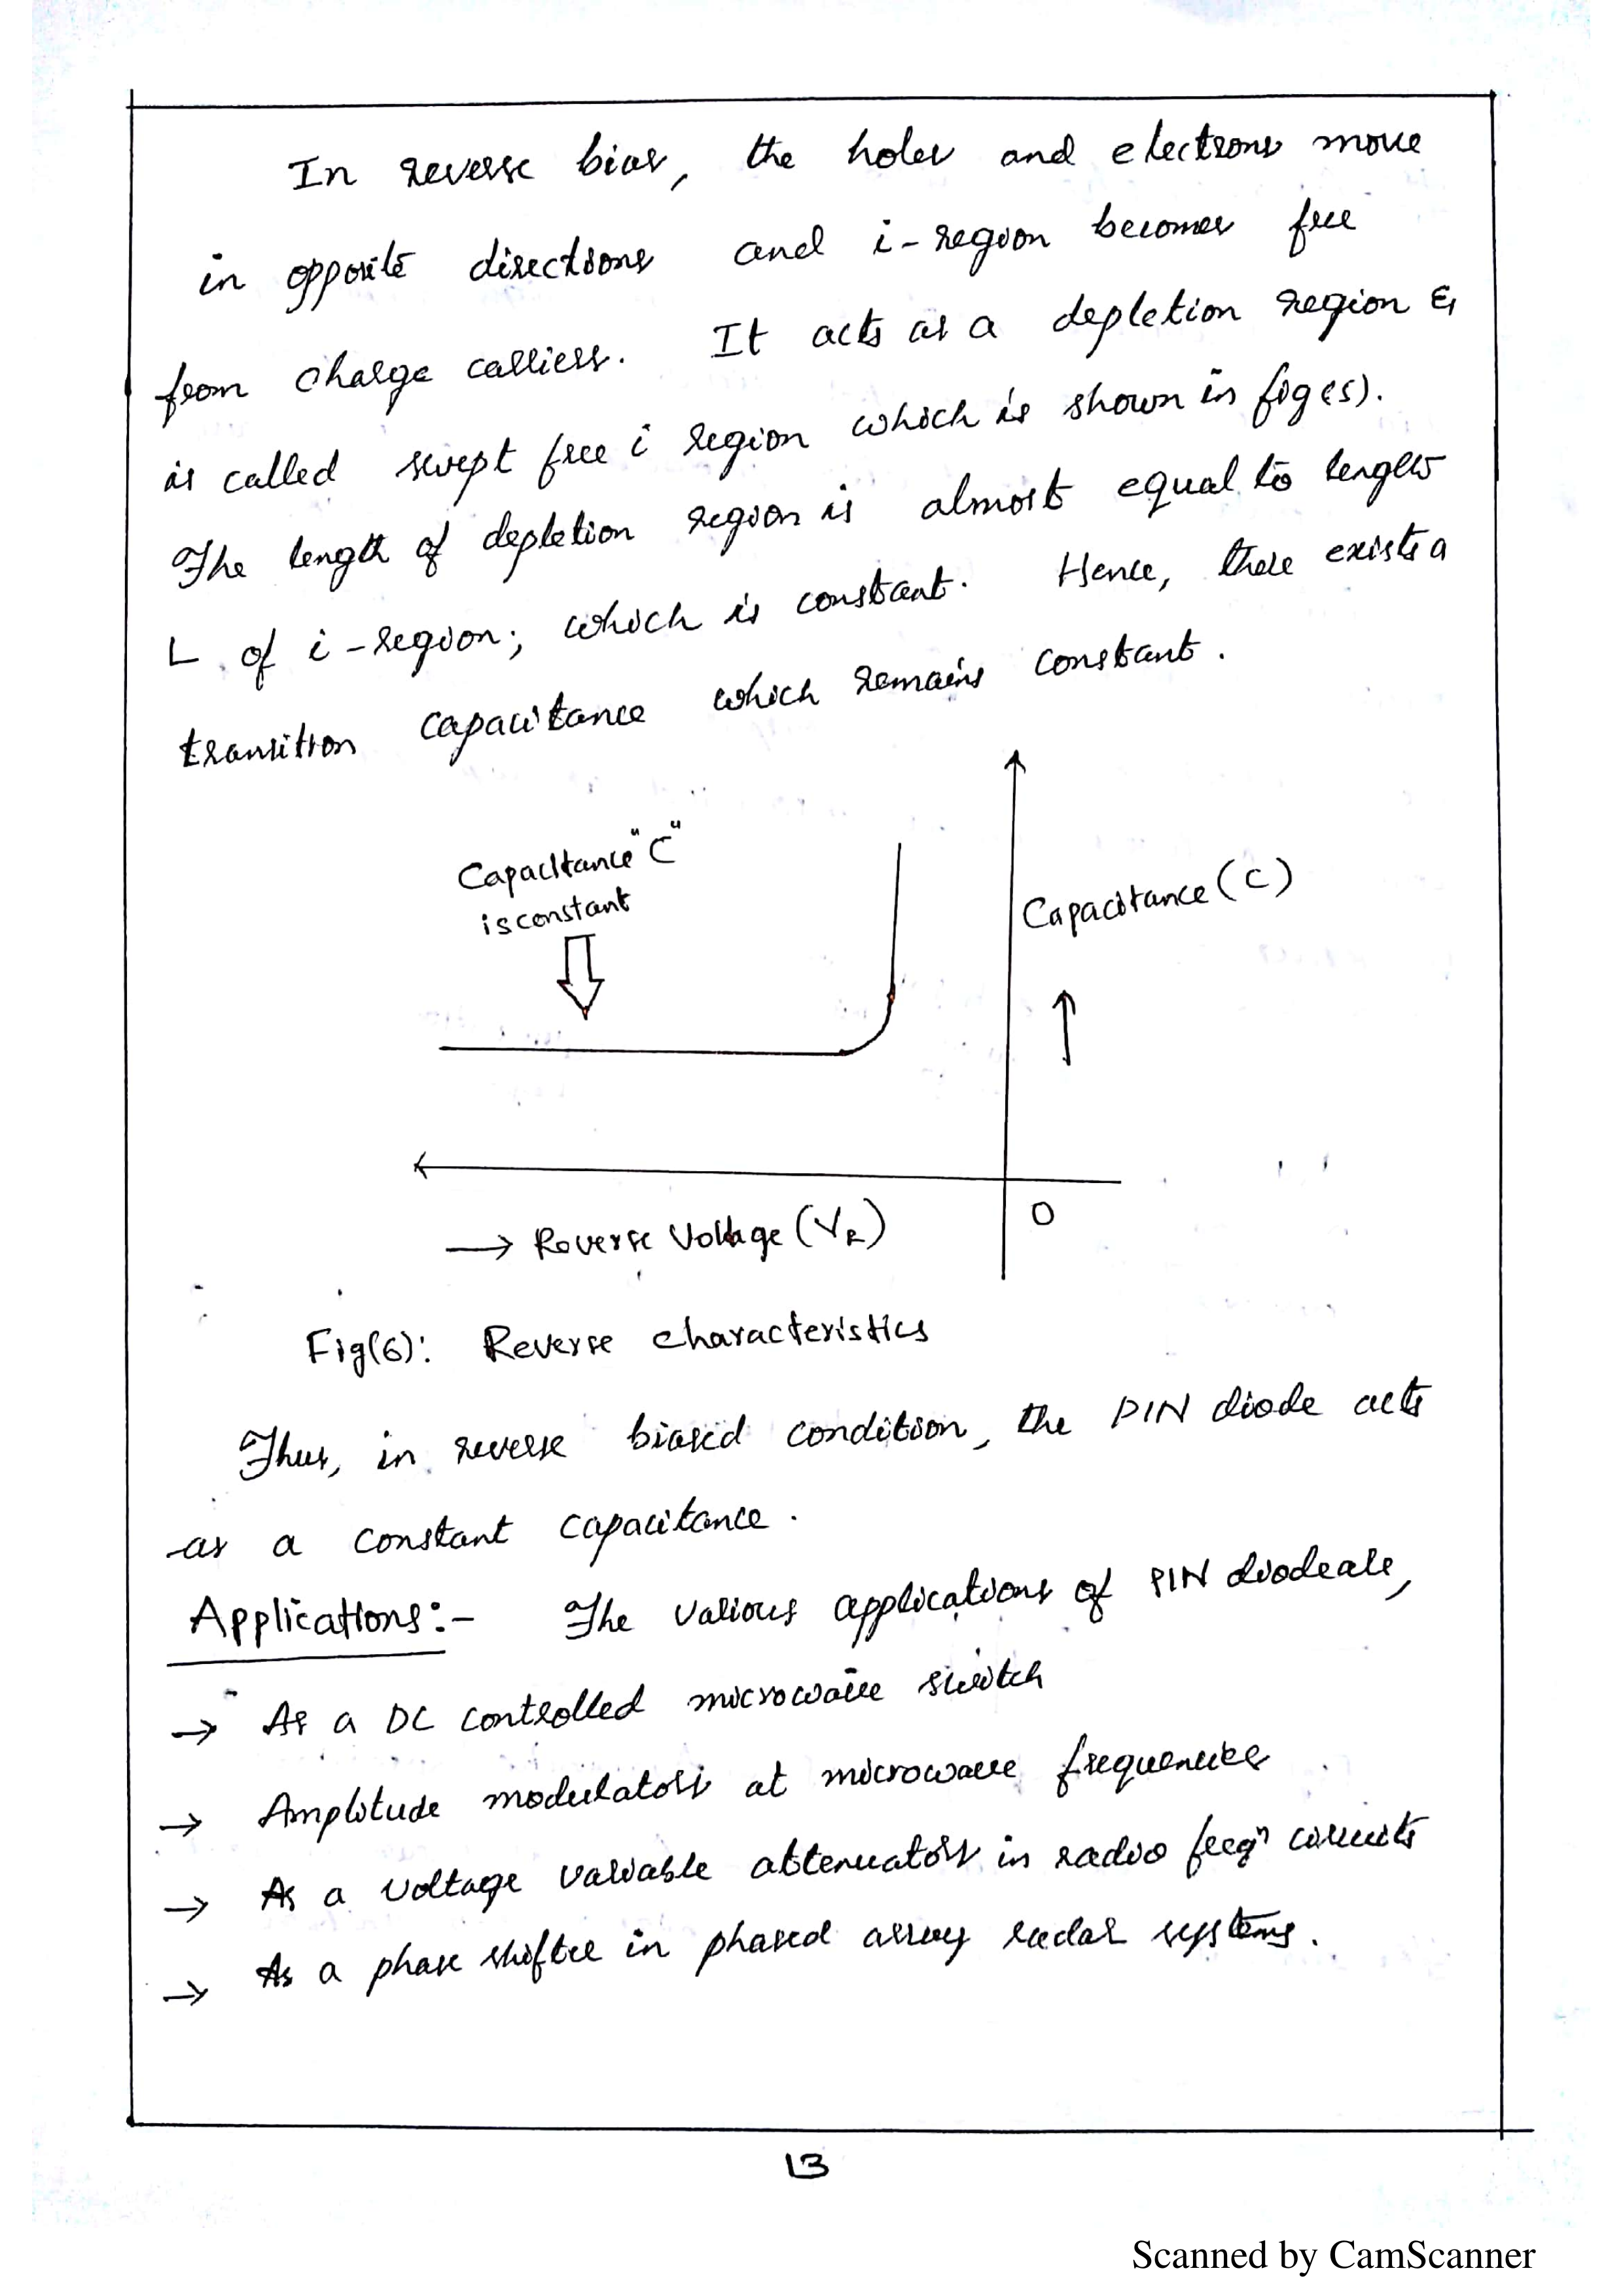 In reverse bias, the holes and electrons move
in opposite directions and i-region becomes free
from charge carriers. It acts as a depletion region &
is called swept free i region which is shown in fig(5).
The length of depletion region is almost equal to length
L of i-region; which is constant. Hence, there exists a
transition capacitance which remains constant.
Capacitance "C"
is constant
Capacitance (C)
↑
0
→ Reverse Voltage (VR)
Fig(6): Reverse characteristics
Thus, in reverse biased condition, the PIN diode acts
as a constant capacitance.
Applications:- The various applications of PIN diode are,
→ As a DC controlled microwave switch
→ Amplitude modulators at microwave frequencies
→ As a voltage variable attenuators in radio freqn circuits
→ As a phase shifter in phased array radar systems.
13
Scanned by CamScanner